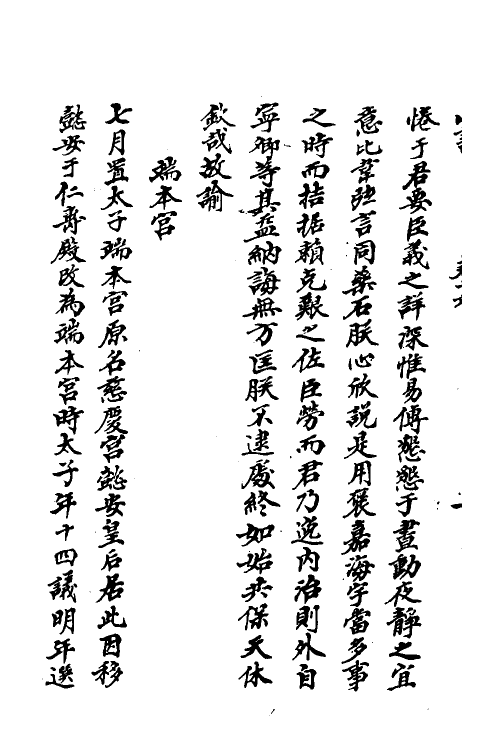 惓于君要臣義之詳深惟易傳懇懇于晝動夜靜之宜
意比葦弦言同藥石朕心欣説是用褒嘉海宇當多事
之時而拮据賴克艱之佐臣勞而君乃逸內治則外自
寜卿等其益納誨無方匡朕不逮慶終如始共保天休
欽哉故諭
瑞本宮
七月置太子瑞本宮原名慈慶宮懿安皇后居此因移
懿安于仁壽殿改為端本宮時太子年十四議明年選